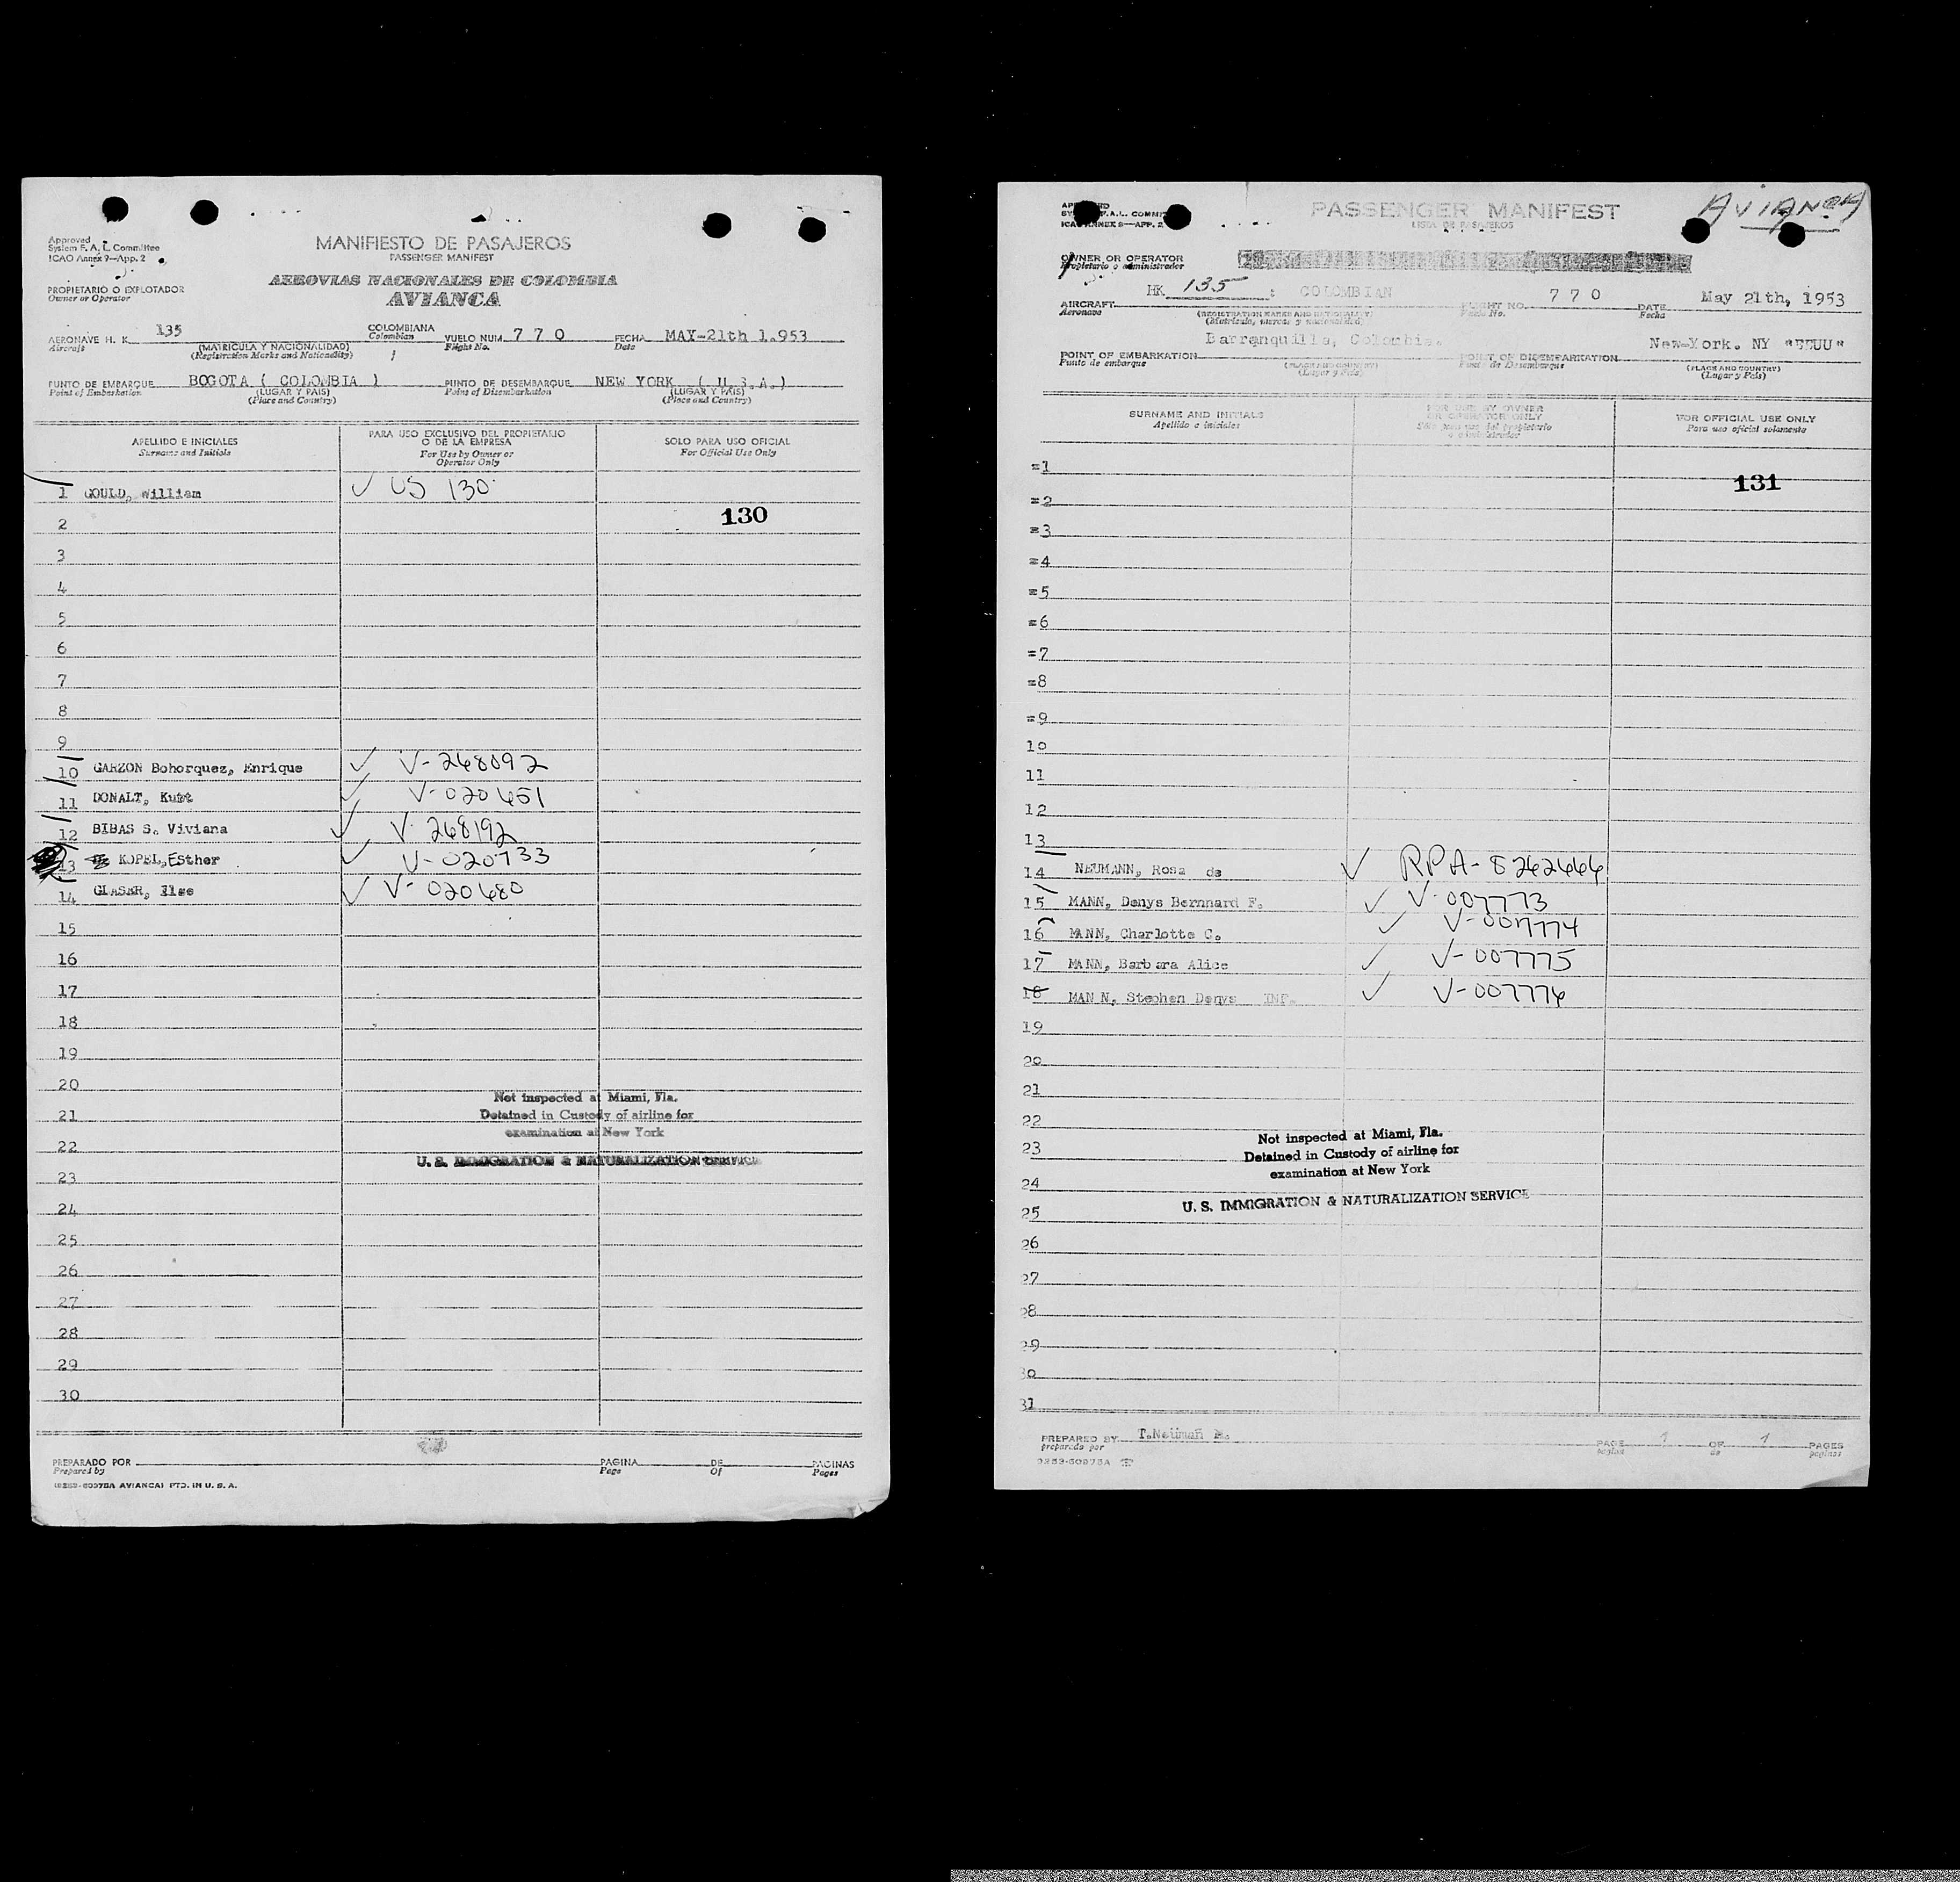 Approved
System F. A. L. Committee
ICAO Annex 9—App. 2
MANIFIESTO DE PASAJEROS
PASSENGER MANIFEST
AEROVIAS NACIONALES DE COLOMBIA
AVIANCA
PROPIETARIO O EXPLOTADOR
Owner or Operator
AERONAVE H. K. 135 COLOMBIANA VUELO NUM. 7 7 0 FECHA MAY-21th 1.953
Aircraft (MATRICULA Y NACIONALIDAD) Colombian Flight No. Date
(Registration Marks and Nationality)
PUNTO DE EMBARQUE BOGOTA ( COLOMBIA ) PUNTO DE DESEMBARQUE NEW YORK ( U.S.A.)
Point of Embarkation (LUGAR Y PAIS) Point of Disembarkation (LUGAR Y PAIS)
(Place and Country) (Place and Country)
APELLIDO E INICIALES PARA USO EXCLUSIVO DEL PROPIETARIO SOLO PARA USO OFICIAL
Surname and Initials O DE LA EMPRESA For Official Use Only
For Use by Owner or
Operator Only
1 GOULD, William ✓ US 130
2 130
3
4
5
6
7
8
9
10 GARZON Bohorquez, Enrique ✓ V-268092
11 DONALT, Kurt ✓ V-020651
12 BIBAS S. Viviana ✓ V-268192
13 KOPEL, Esther ✓ V-020733
14 GLASER, Else ✓ V-020680
15
16
17
18
19
20
Not inspected at Miami, Fla.
21 Detained in Custody of airline for
examination at New York
22
U. S. IMMIGRATION & NATURALIZATION SERVICE
23
24
25
26
27
28
29
30
PREPARADO POR PAGINA DE PAGINAS
Prepared by Page Of Pages
(0253-60975A AVIANCA) PTD. IN U. S. A.
AVIANCA
PASSENGER MANIFEST
LISTA DE PASAJEROS
ICAO ANNEX 9—APP. 2
OWNER OR OPERATOR
Propietario o administrador
HK 135 : COLOMBIAN 7 7 0 May 21th, 1953
AIRCRAFT (REGISTRATION MARKS AND NATIONALITY) FLIGHT NO. DATE
Aeronave (Matricula, marcas y nacionalidad) Vuelo No. Fecha
Barranquilla, Colombia. New-York. NY "EEUU"
POINT OF EMBARKATION (PLACE AND COUNTRY) POINT OF DISEMBARKATION (PLACE AND COUNTRY)
Punto de embarque (Lugar y País) Punto de Desembarque (Lugar y País)
SURNAME AND INITIALS FOR USE BY OWNER FOR OFFICIAL USE ONLY
Apellido e iniciales OR OPERATOR ONLY Para uso oficial solamente
Sólo para uso del propietario
o administrador
=1
131
=2
=3
=4
=5
=6
=7
=8
=9
10
11
12
13
14 NEUMANN, Rosa de ✓ RPA-8262466
15 MANN, Denys Bernnard F. ✓ V-007773
16 MANN, Charlotte C. ✓ V-007774
17 MANN, Barbara Alice ✓ V-007775
18 MAN N, Stephen Denys INF. ✓ V-007776
19
20
21
22
Not inspected at Miami, Fla.
23 Detained in Custody of airline for
examination at New York
24
U. S. IMMIGRATION & NATURALIZATION SERVICE
25
26
27
28
29
30
31
PREPARED BY T.Neuman PAGE 1 OF 1 PAGES
preparado por pagina de paginas
0253-60975A